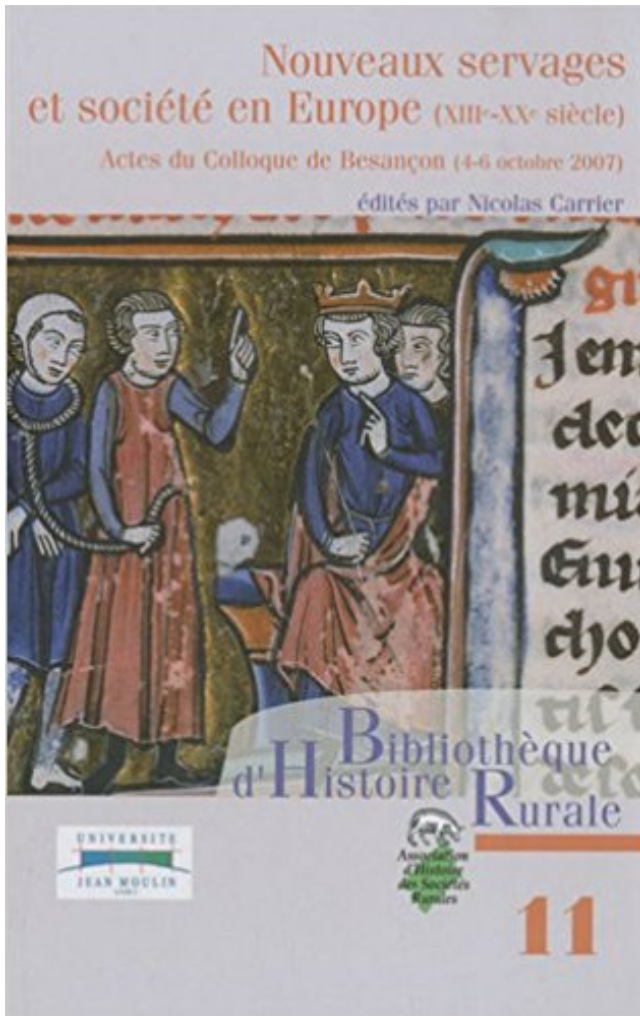 Nouveaux servages
et société en Europe (XIIIe-XXe siècle)
Actes du Colloque de Besançon (4-6 octobre 2007)
édités par Nicolas Carrier
Jem
ded
mia
cho
Bibliothèque
d'Histoire
Rurale
UNIVERSITE
JEAN MOULIN
Association
d'Histoire
des Sociétés
Rurales
11